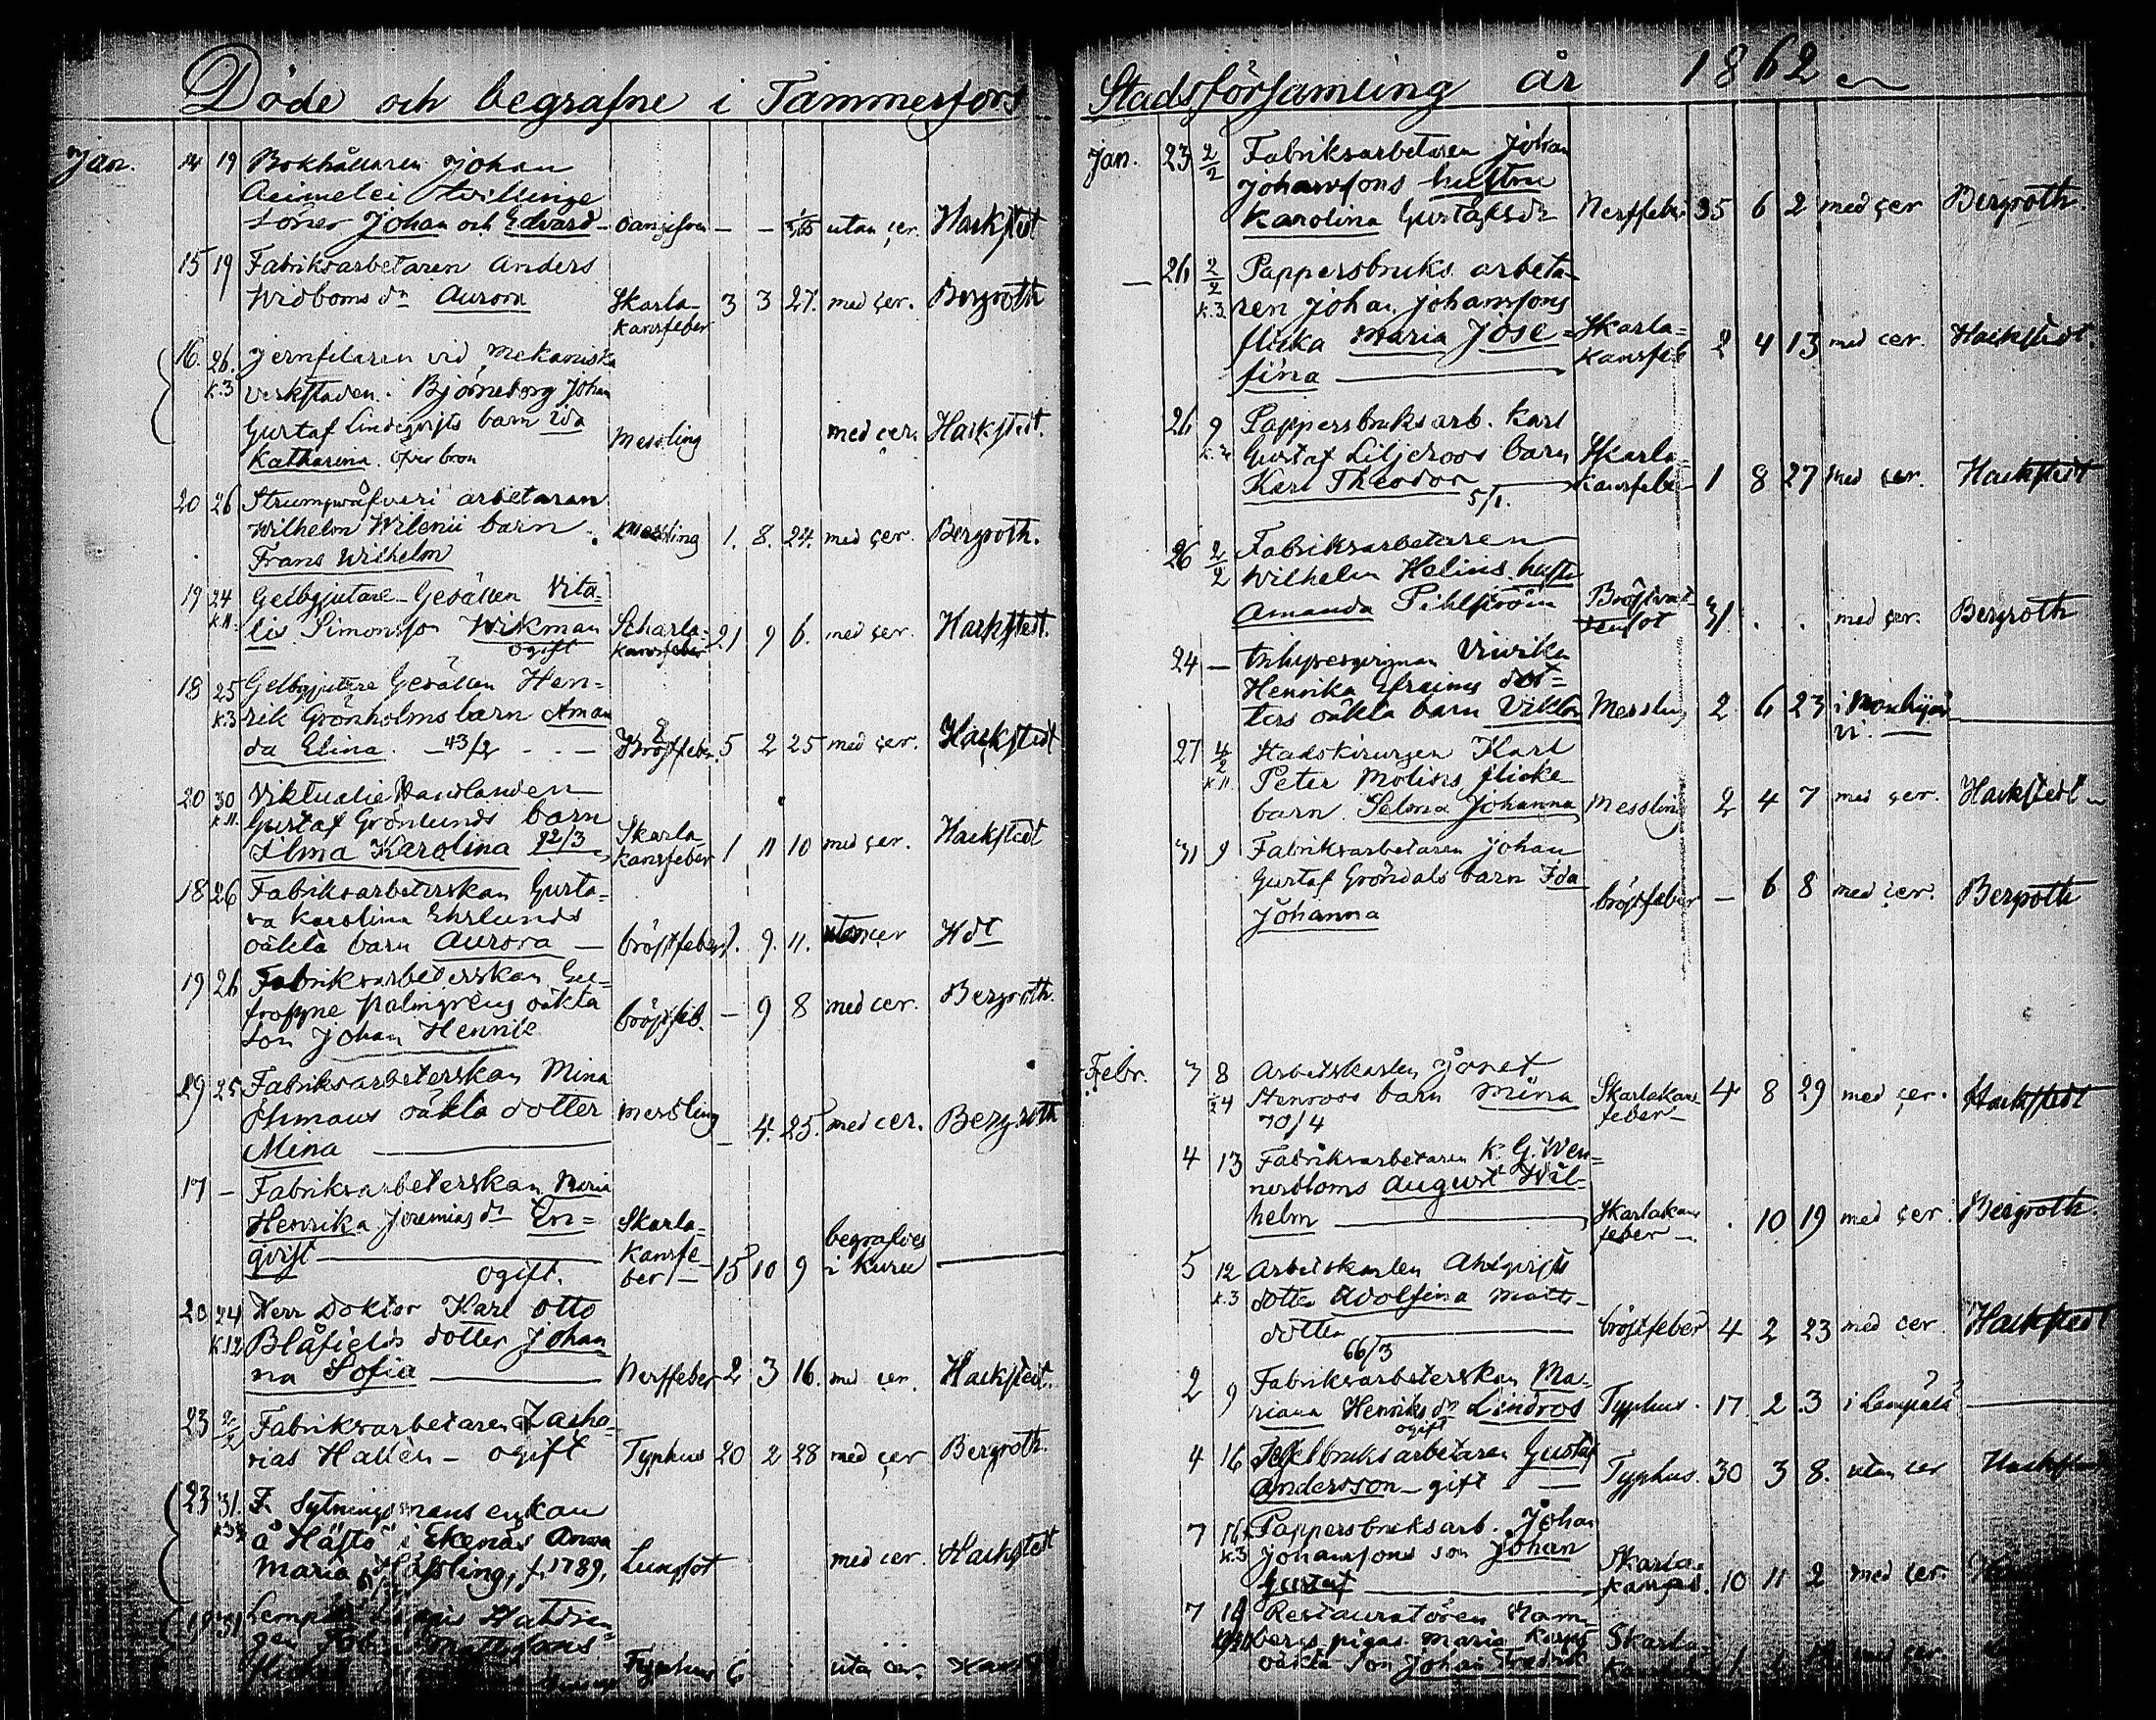 Döde och begrafne i Tammerfors
Jan. 14 19 Bokhållaren Johan
tvillinge
söner Johan och Edvard - - - utan cer. Hackstedt
15 19 Fabriksarbetaren Anders
Widboms dr Aurora Skarla-
kansfeber 3 3 27. med cer. Bergroth
16. 26. Jernfilaren vid mekaniska
k.3 verkstaden i Björneborg Johan
Gustaf Lindqvists barn Ida
Katharina. öfver bron Messling med cer. Hackstedt.
20 26 arbetaren
Wilhelm Wilenii barn
Frans Wilhelm Messling 1. 8. 24. med cer. Bergroth.
19 24 Gelbgjutare-Gesällen Vita-
k.11. lis Simonsson Wikman
ogift Scharla-
kansfeber 21 9 6. med cer. Hackstedt.
18 25 Gelbgjutare Gesällen Hen-
k.3 rik Grönholms barn Aman
da Elina. - 43/2 - - - Bröstfeber. 5 2 25 med cer. Hackstedt
20 30 Viktualie Handlanden
k.11. Gustaf Grönlunds barn
Ilma Karolina 92/3 Skarla-
kansfeber 1 11 10 med cer. Hackstedt
18 26 Fabriksarbeterskan Gusta-
va Karolina Ehrlunds
oäkta barn Aurora - bröstfeber 1. 9. 11. utan cer Hdt
19 26 Fabriksarbeterskan Eu-
frosyne Palmgrens oäkta
son Johan Henrik bröstfeb. - 9 8 med cer. Bergroth.
29 25 Fabriksarbeterskan Mina
oäkta dotter
Mina Messling - 4. 25. med cer. Bergroth
17 - Fabriksarbeterskan Maria
Henrika Jeremias dr En-
qvist
ogift. Skarla-
kansfe-
ber - 15 10 9 begrafves
i Kuru
20 24 Herr Doktor Karl Otto
k.12 Blåfields dotter Johan-
na Sofia Nerffeber 2 3 16. med cer. Hackstedt.
23 2/2 Fabriksarbetaren Zacha-
rias Hallén - ogift Typhus 20 2 28 med cer Bergroth.
23 31. F. Sytningsmans enkan
å Hästö i Ekenäs Anna
Maria f. 1789, Lungsot med cer. Hackstedt
31
Typhus 6 utan cer.
Stadsförsamling år 1862
Jan. 23 2/2 Fabriksarbetaren Johan
Johanssons hustru
Karolina Gustafsdr Nerffeber 35 6 2 med cer Bergroth
- 26 2/2 Pappersbruks arbeta-
k.3. ren Johan Johanssons
flicka Maria Jose-
fina Skarla-
kansfeb 2 4 13 med cer. Hackstedt.
26 9 Pappersbruksarb. Karl
Gustaf Liljeroos barn
Karl Theodor
5/1. Skarla-
kansfeber 1 8 27 med cer. Hackstedt
26 2/2 Fabriksarbetaren
Wilhelm Helins hustr
Amanda Pihlström 31 . . med cer. Bergroth
24 - Vivika
Henrika Efraims dot-
ters oäkta barn Viktor Messling 2 6 23 i
27 4/2 Stadskirurgen Karl
k.11. Peter Molins flicke-
barn Selma Johanna Messling 2 4 7 med cer. Hackstedt
31 9 Fabriksarbetaren Johan
Gustaf Gröndals barn Ida
Johanna bröstfeber - 6 8 med cer. Bergroth
Febr. 3 8 Arbetskarlen
Stenroos barn Mina
70/4 Skarlakans-
feber - 4 8 29 med cer. Hackstedt
4 13 Fabriksarbetaren K. G. Wen-
nerbloms August Wil-
helm Skarlakans
feber - . 10 19 med cer. Bergroth.
5 12 Arbetskarlen Ahlqvists
k.3 dotter Adolfina Matts-
dotter
66/3 bröstfeber 4 2 23 med cer Hackstedt
2 9 Fabriksarbeterskan Ma-
riana Henriks dr Lindros
ogift Typhus. 17 2 3 i Lempälä
4 16 Segelbruksarbetaren Gustaf
Andersson - gift Typhus. 30 3 8. utan cer
7 16 Pappersbruksarb. Johan
k.3 Johanssons son Johan
Gustaf Skarla-
10 11 2 med cer.
7 Restauratören
bergs pigas Maria
oäkta son Johan Fredrik Skarla-
med cer.